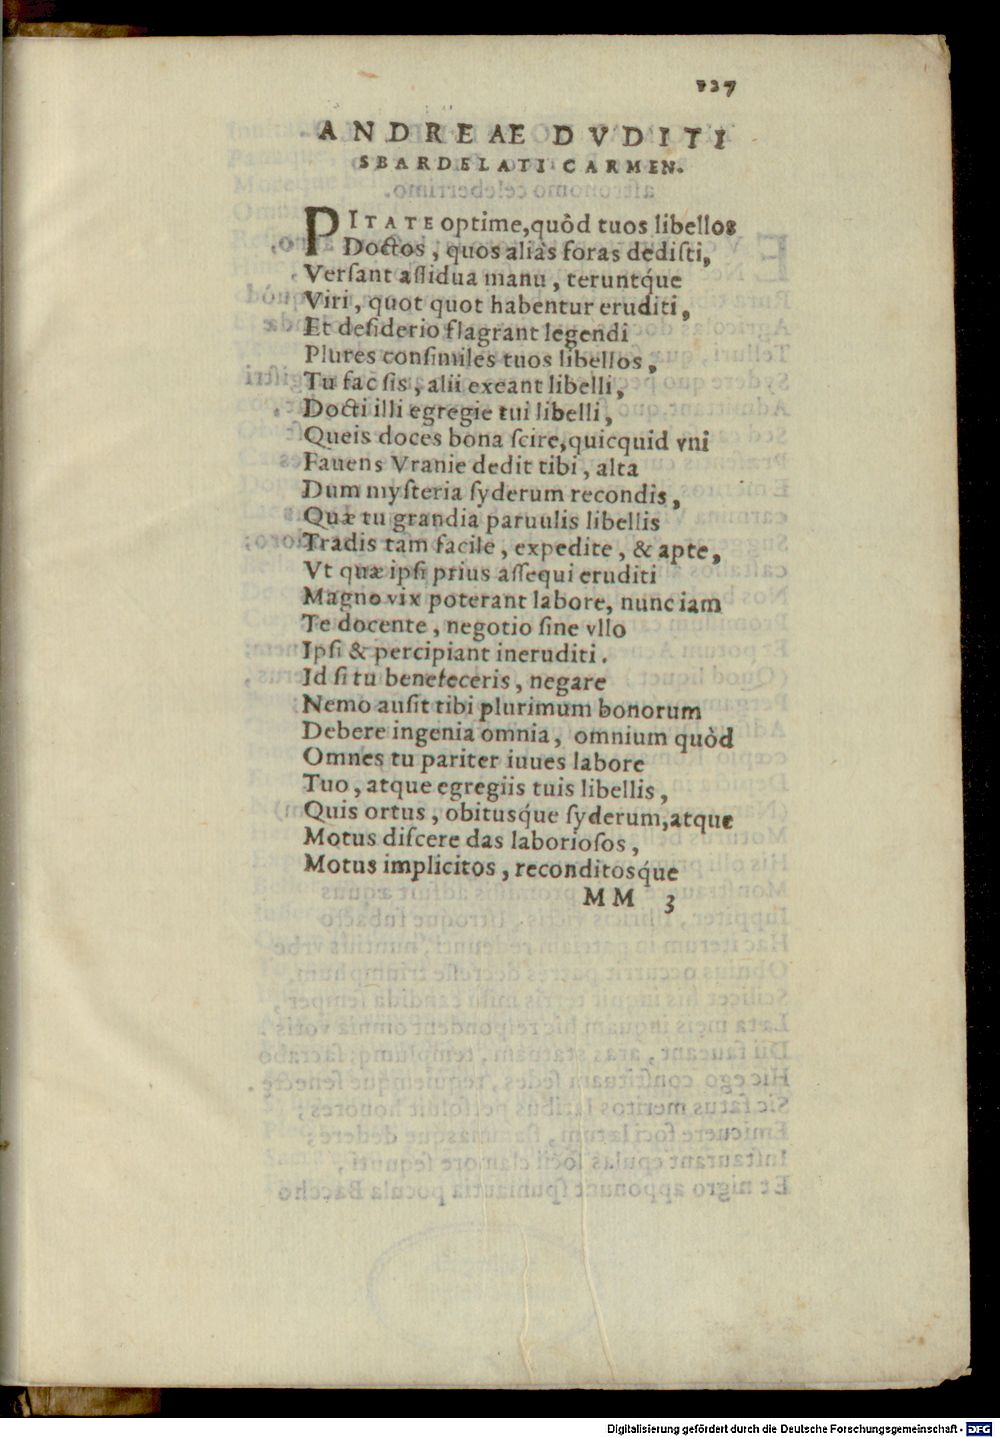 137
ANDREAE DVDITI
SBARDELATI CARMEN.
PITATE optime, quòd tuos libellos
Doctos, quos aliàs foras dedisti,
Versant assidua manu, teruntq́ue
Viri, quot quot habentur eruditi,
Et desiderio flagrant legendi
Plures consimiles tuos libellos,
Tu fac sis, alii exeant libelli,
Docti illi egregie tui libelli,
Queis doces bona scire, quicquid vni
Fauens Vranie dedit tibi, alta
Dum mysteria syderum recondis,
Quæ tu grandia paruulis libellis
Tradis tam facile, expedite, & apte,
Vt quæ ipsi prius assequi eruditi
Magno vix poterant labore, nunc iam
Te docente, negotio sine vllo
Ipsi & percipiant ineruditi.
Id si tu benefeceris, negare
Nemo ausit tibi plurimum bonorum
Debere ingenia omnia, omnium quòd
Omnes tu pariter iuues labore
Tuo, atque egregiis tuis libellis,
Quis ortus, obitusq́ue syderum, atque
Motus discere das laboriosos,
Motus implicitos, reconditosq́ue
MM 3
Digitalisierung gefördert durch die Deutsche Forschungsgemeinschaft - DFG